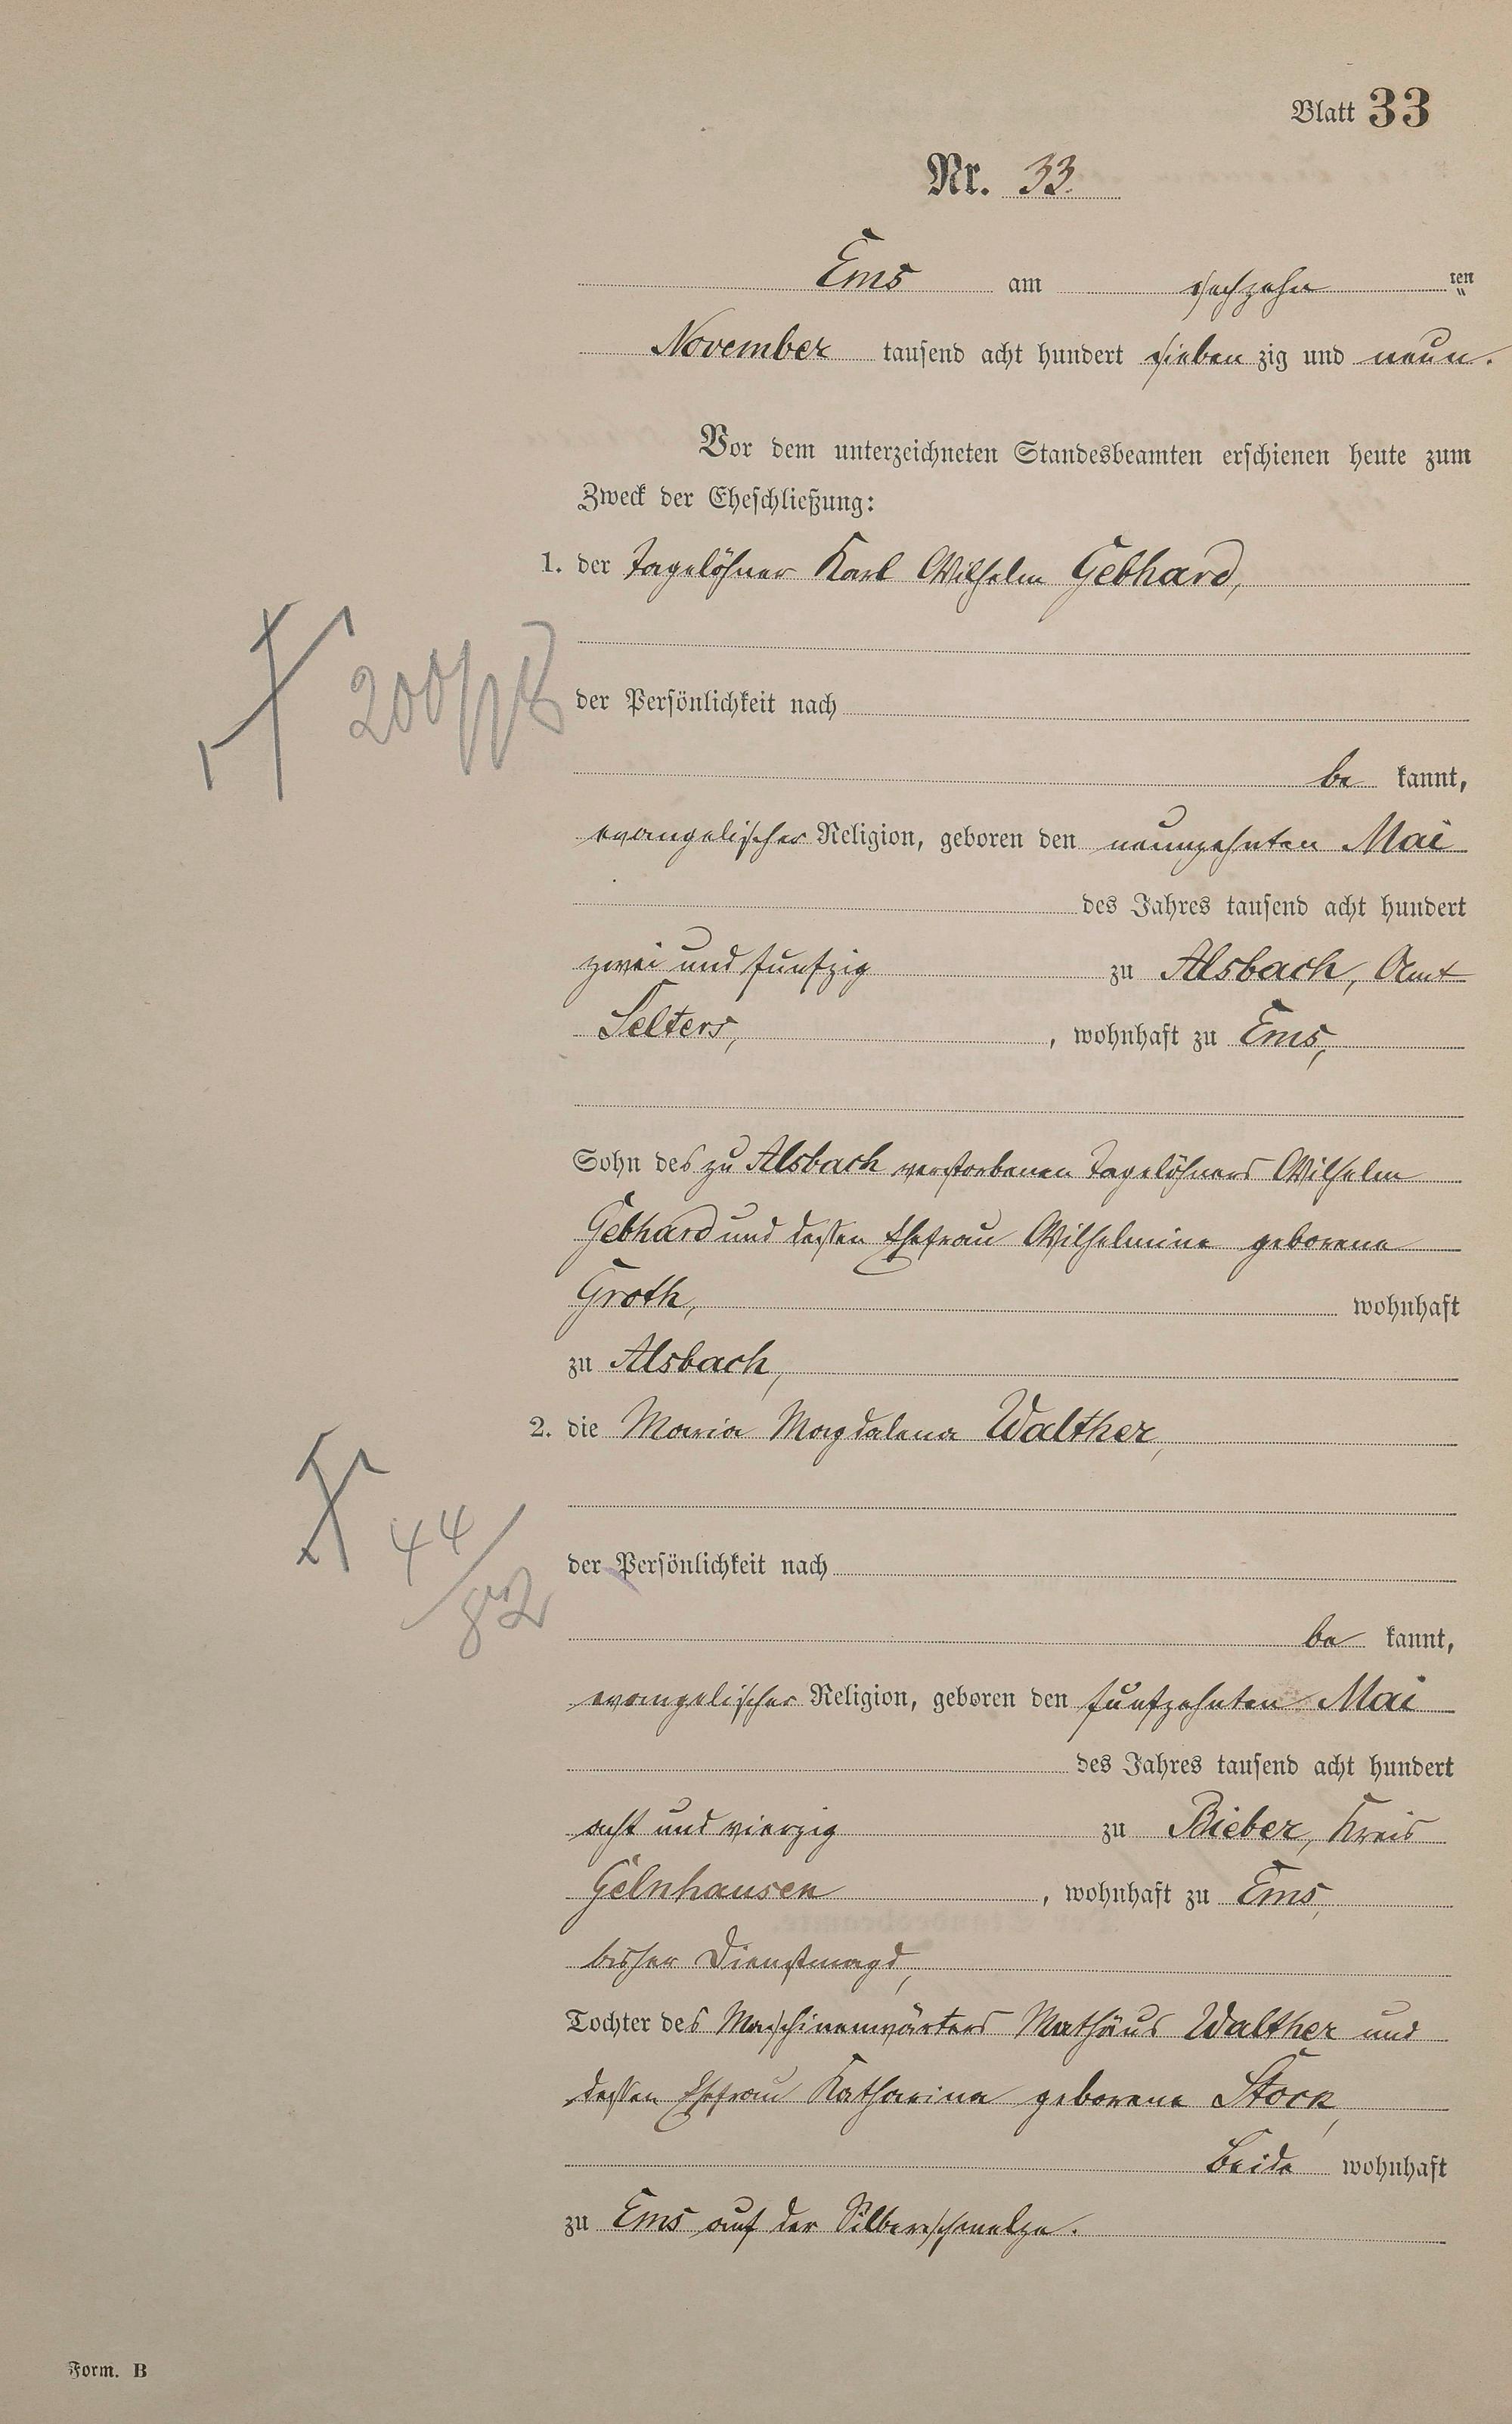 Blatt 33
Nr. 33.
Ems am sechzehn ten
November tausend acht hundert sieben zig und neun.
Vor dem unterzeichneten Standesbeamten erschienen heute zum
Zweck der Eheschließung:
1. der Tagelöhner Karl Wilhelm Gebhard,
der Persönlichkeit nach
be kannt,
evangelischer Religion, geboren den neunzehnten Mai
des Jahres tausend acht hundert
zwei und fünfzig zu Alsbach, Amt
Selters, , wohnhaft zu Ems,
Sohn des zu Alsbach verstorbenen Tagelöhners Wilhelm
Gebhard und dessen Ehefrau Wilhelmine geborene
Groth, wohnhaft
zu Alsbach,
2. die Maria Magdalena Walther,
44
der Persönlichkeit nach
be kannt,
evangelischer Religion, geboren den fünfzehnten Mai
des Jahres tausend acht hundert
acht und vierzig zu Bieber, Kreis
Gelnhausen , wohnhaft zu Ems,
bisher Dienstmagd,
Tochter des Maschinenwärters Mathäus Walther und
dessen Ehefrau Katharina geborene Stock,
Beide wohnhaft
zu Ems auf der Silberschmelze.
Form. B